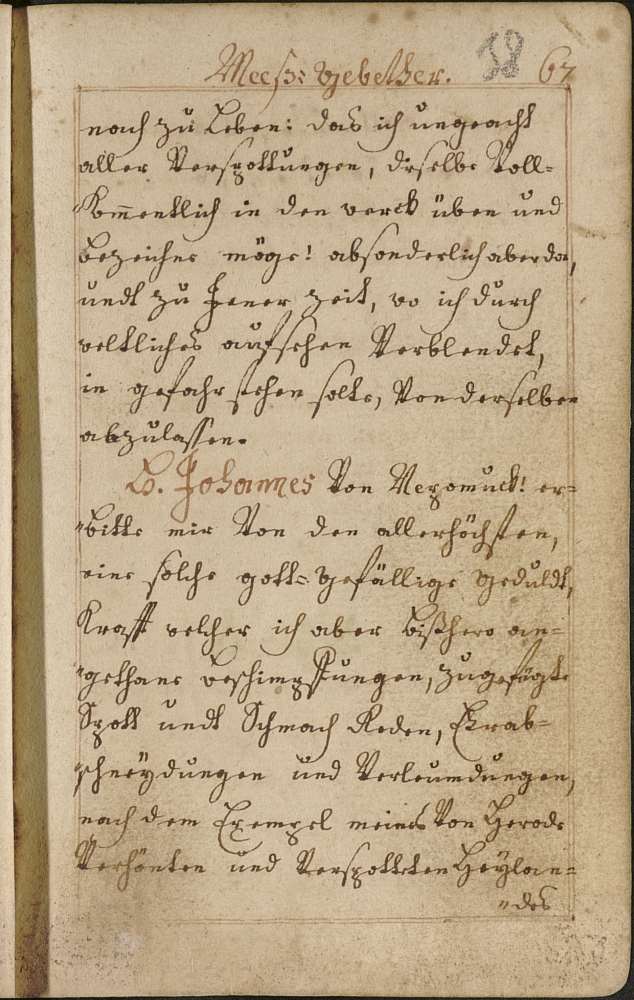 Meeß: gebether. 38 67
nach zu Leben: das ich ungeacht
aller Verspottungen, dieselbe Voll=
"Kom̄entlich in den werck üben und
bezeichne möge! absonderlich aber da,
undt zu Jener zeit, wo ich durch
weltliches aufsehen Verblendet,
in gefahr stehen solte, Von derselben
abzulassen.
Johannes Von Nepomuck! er=
"bitte mir Von den allerhöchsten,
eine solche gott=gefällige geduldt,
Krafft welcher ich aber bißhero an=
"gethane beschimpffungen, zugefügte
Spott undt Schmach Reden, Ehrab=
"schneydungen und Verleumdungen,
nach dem Exempel meines Von Herode
Verhönten und Verspotteten Heylan=
"des